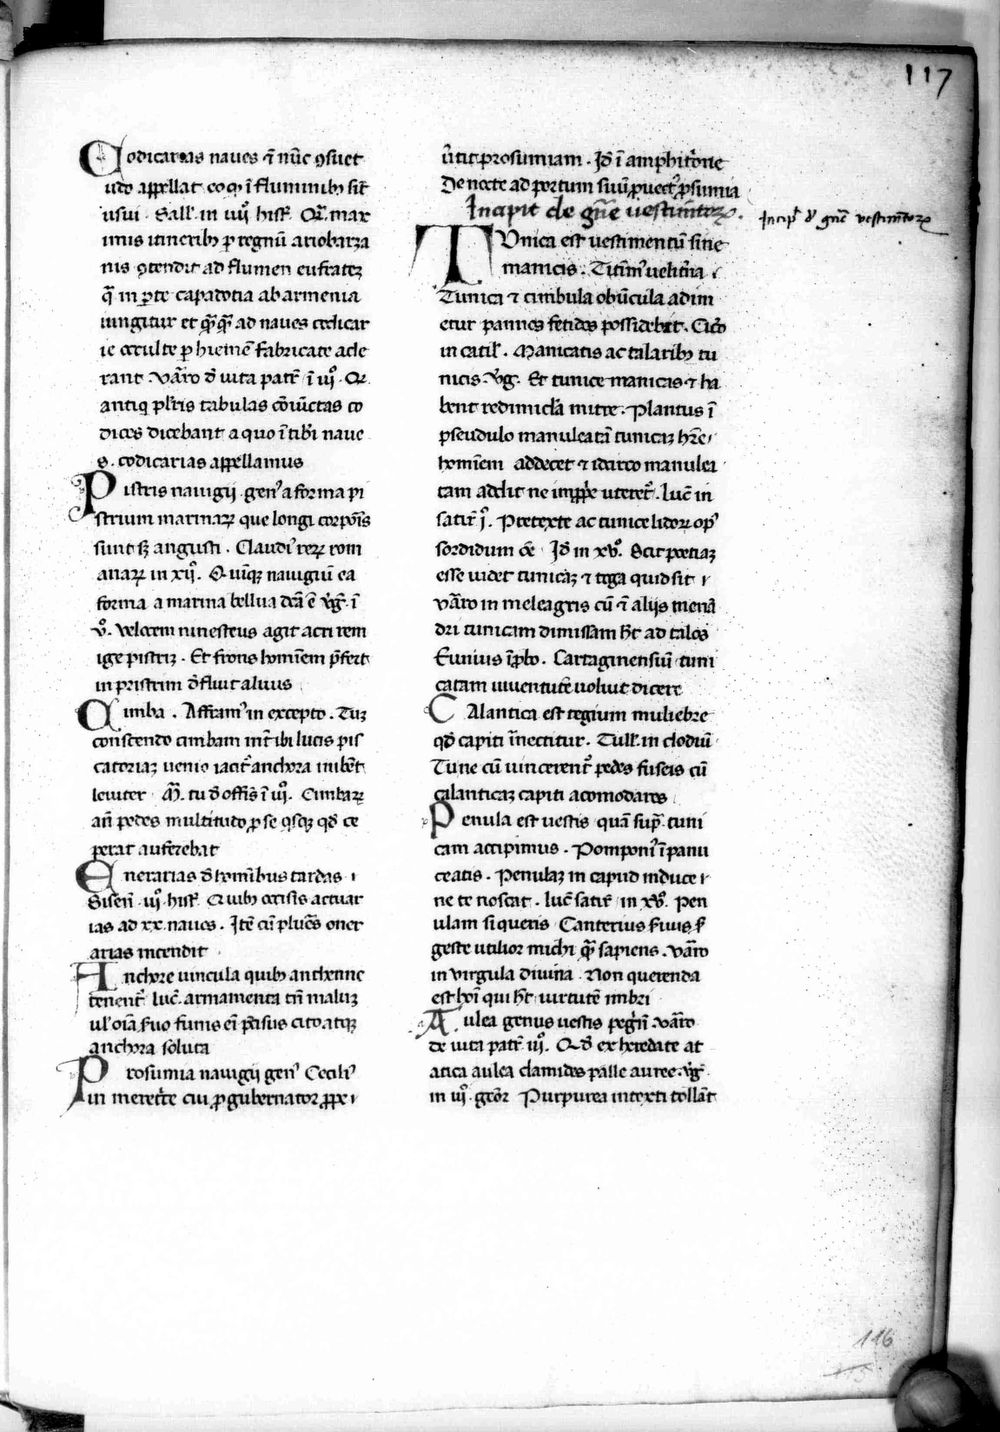 117
Codicarias naues ⁊ nūc ꝯsuet
udo appellat eo qͥ ī fluminibꝫ sit
usui . Sall' . in iiijͦ hist' . Qr̄ . max
imis itineribꝫ ꝑ regnū ariobarza
nis ꝯtendit ad flumen eufratez
q̄ in ꝑte capadotia ab armenia
iungitur et q̄ꝗ̄ ad naues codicar
ie occulte ꝑ hiemē fabricate ade
rant . Varͦo d̄ uita patr̄ . ī iijͦ . Qr
antiqͥ pl'ris tabulas cōiūctas co
dices dicebant a quo ī tibͥi naue
s . codicarias appellamus
Pistris nauigij . genꝰ a forma pi
strium marinaꝝ que longi corpoīs
sunt sꝫ angusti . Claudiꝰ reꝝ rom
anaꝝ in xijͦ . Quinqꝫ nauigiū ea
forma a marina bellua dc̄a ē v̄g . ī
vͦ . Velocem ninesteus agit acri rem
ige pistriz . Et frons homīem p̄fert
in pristrim d̄sluit aluus
Cimba . Affraniꝰ in excepto . Tuꝫ
conscendo cimbam int̄ ibi lucis pis
catoriaꝫ uenio iacit̄ anchora inibēt
leuiter . M̄ . tu d̄ offis ī iijͦ . Cimbaꝝ
an̄ pedes multitudo ꝑ se qͥsqꝫ qd̄ ce
perat auferebat
Onerarias d̄ hominibus tardas .
Sisen̄ . iijͦ . hist' . Quibꝫ occisis actuar
ias ad xx . naues . Itē cū plures oner
arias incendit
Anchore uincula quibꝫ anchenne
tenent̄ . luc̄ . armamenta tn̄ maluꝫ
ul' oīa s̄uo funis eī p̄cisus cito atqꝫ
anchora soluta
Prosumia nauigij genꝰ Ceciliꝰ
in meret̄ce cui ꝑ gubernator ꝓpe
ūtit prosumiam . Id̄ ī amphit̄one
De nocte ad portum siuū ꝓuectꝰ ꝓsumia
Incipit de gn̄e uestim̄toꝝ .
Incip' d̄ gn̄e vestim̄toꝝ
Tunica est uestimentū sine
manicis . Titīniꝰ uelit̄na
Tunica ⁊ cimbula obūcula adim
etur pannos fetidos possidebit . Cicͦo
in catil' . Manicatis ac talaribꝫ tu
nicis . v̄g . Et tunice manicas ⁊ ha
bent redimicla mitre . Plantus ī
pseudulo manuleatā tunicaꝫ hr̄e
homīem addecet ⁊ idcirco manulea
tam addit ne imꝓp̄e uteret̄ . luc̄ in
satir̄ jͦ . Pretexte ac tunice lidoꝝ opꝰ
sordidum oē . Id̄ in xvͦ . Scit poetiaꝫ
esse uidet tunicaꝫ ⁊ toga quid sit
Varͦo in meleagris cū ⁊ alijs menā
dri tunicam dimissam hꝫt ad talos
Eunius ī ꝓbo . Cartaginensiū tuni
catam iuuentutē uoluit dicere
Calantica est tegium muliebre
qd̄ capiti īnectitur . Tull' . in clodiū
Tu ne cū uincerent̄ pedes fuscis cū
calanticaꝫ capiti acomodares
Penula est uestis quā sup̄ . tuni
cam accipimus . Pomponiꝰ ī panu
ceatis . Penulaꝫ in capud induce
ne te noscat . luc̄ satir̄ in xvͦ . Pen
ulam si queris Canterius s̄uus s̄
gestr utilior michi q̄ sapiens . Varͦo
in virgula diuina . Non querenda
est hoī qui hꝫt uirtutē imbri
Aulea genus uestis pegͥnī . Varͦo
de uita patr̄ iijͦ . Qd̄ ex heredate at
atica aulea clamides palle auree . v̄g
in iijͦ . geor̄ Purpurea intexti tollāt
116